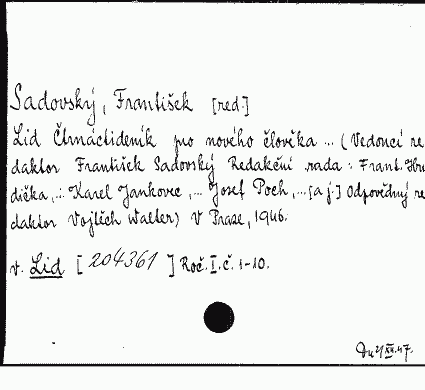 Sadovský, František [red.]
Lid Čtrnáctideník pro nového člověka ... (Vedoucí re
daktor František Sadovský Redakční rada: Frant. Hru
dička, .: Karel Jankovec, ... Josef Poch, ... [a j.] Odpovědný re
daktor Vojtěch Walter) V Praze, 1946.
v. Lid [204361] Roč. I. č. 1-10.
Du 21 XII. 47.